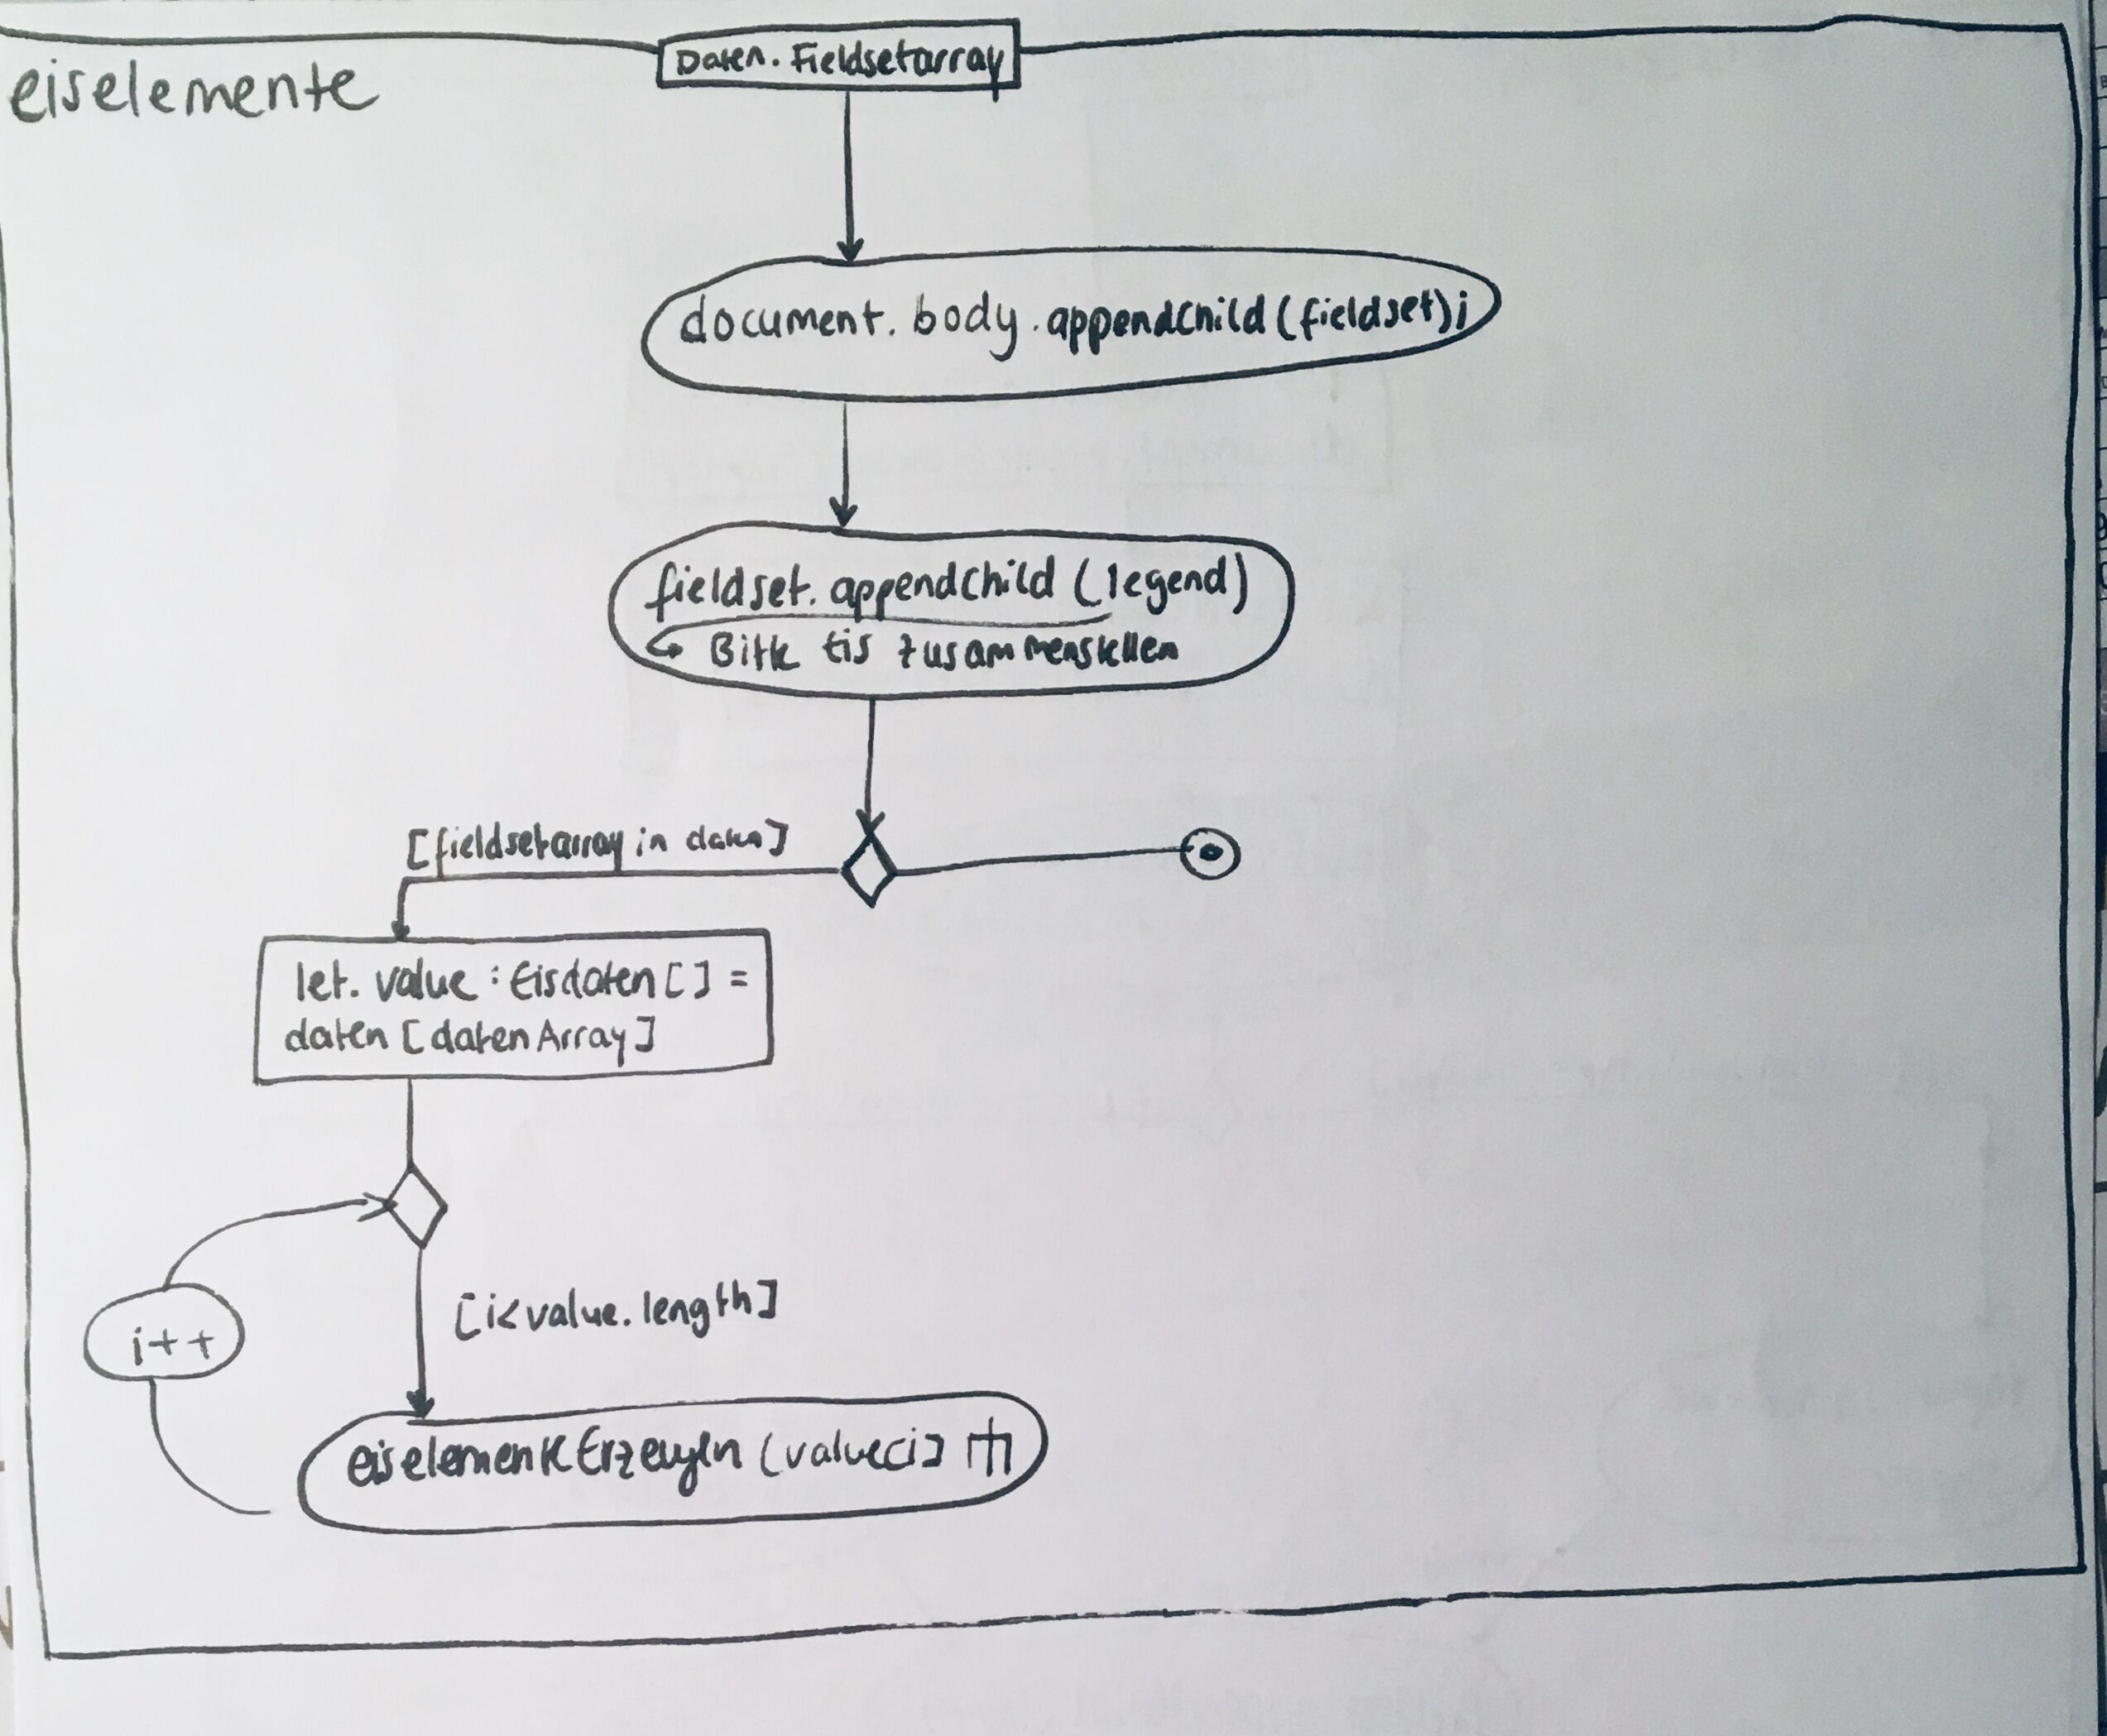 Daten.Fieldsetarray
eiselemente
document.body.appendChild(fieldset);
fieldset.appendChild(legend)
Bitte Eis zusammenstellen
[fieldsetarray in daten]
let. value : Eisdaten [] =
daten [datenArray]
[i<value.length]
i++
eiselementeErzeugen (value[i]